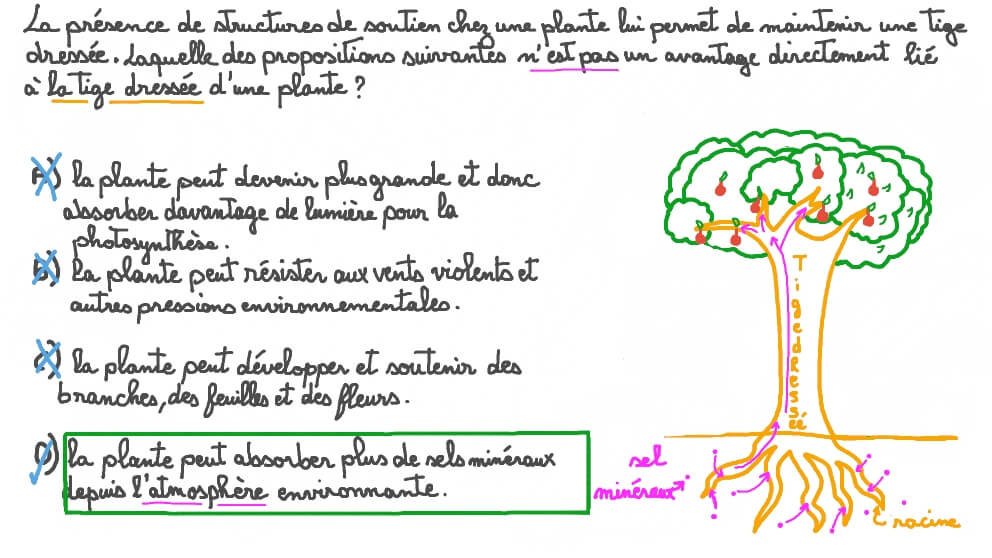 La présence de structures de soutien chez une plante lui permet de maintenir une tige
dressée. Laquelle des propositions suivantes n'est pas un avantage directement lié
à la tige dressée d'une plante ?
A) la plante peut devenir plus grande et donc
absorber davantage de lumière pour la
photosynthèse.
B) La plante peut résister aux vents violents et
autres pressions environnementales.
C) la plante peut développer et soutenir des
branches, des feuilles et des fleurs.
D) la plante peut absorber plus de sels minéraux
depuis l'atmosphère environnante.
Tige dressée
sel
minéraux
racine